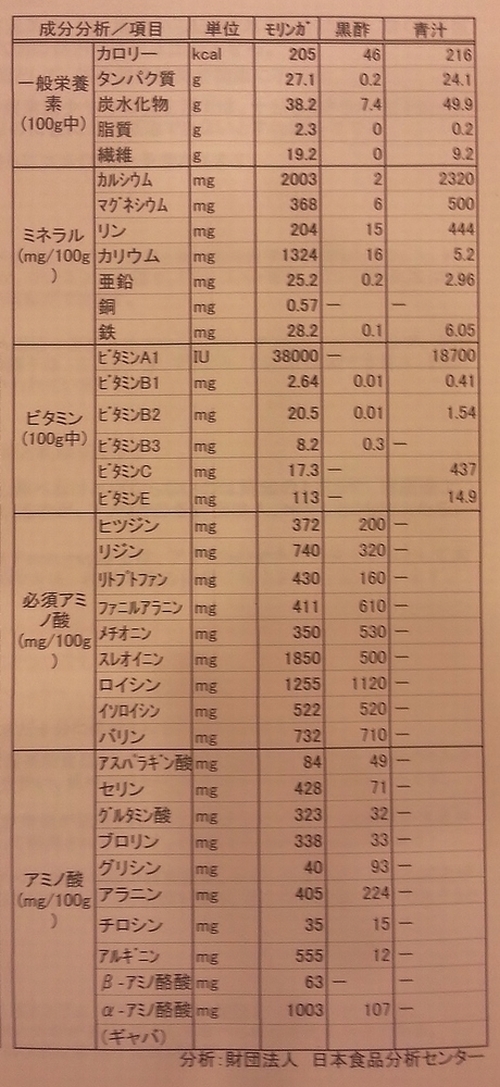 成分分析／項目 単位 ﾓﾘﾝｶﾞ 黒酢 青汁
一般栄養素 (100g中)
カロリー kcal 205 46 216
タンパク質 g 27.1 0.2 24.1
炭水化物 g 38.2 7.4 49.9
脂質 g 2.3 0 0.2
繊維 g 19.2 0 9.2
ミネラル (mg/100g)
ｶﾙｼｳﾑ mg 2003 2 2320
ﾏｸﾞﾈｼｳﾑ mg 368 6 500
リン mg 204 15 444
カリウム mg 1324 16 5.2
亜鉛 mg 25.2 0.2 2.96
銅 mg 0.57 － －
鉄 mg 28.2 0.1 6.05
ビタミン (100g中)
ﾋﾞﾀﾐﾝA1 IU 38000 － 18700
ﾋﾞﾀﾐﾝB1 mg 2.64 0.01 0.41
ﾋﾞﾀﾐﾝB2 mg 20.5 0.01 1.54
ﾋﾞﾀﾐﾝB3 mg 8.2 0.3 －
ﾋﾞﾀﾐﾝC mg 17.3 － 437
ﾋﾞﾀﾐﾝE mg 113 － 14.9
必須アミノ酸 (mg/100g)
ヒツジン mg 372 200 －
リジン mg 740 320 －
ﾘﾄﾌﾟﾄﾌｧﾝ mg 430 160 －
ﾌｧﾆﾙｱﾗﾆﾝ mg 411 610 －
ﾒﾁｵﾆﾝ mg 350 530 －
ｽﾚｵｲﾆﾝ mg 1850 500 －
ロイシン mg 1255 1120 －
ｲｿﾛｲｼﾝ mg 522 520 －
バリン mg 732 710 －
アミノ酸 (mg/100g)
ｱｽﾊﾟﾗｷﾞﾝ酸 mg 84 49 －
セリン mg 428 71 －
ｸﾞﾙﾀﾐﾝ酸 mg 323 32 －
プロリン mg 338 33 －
グリシン mg 40 93 －
アラニン mg 405 224 －
チロシン mg 35 15 －
ｱﾙｷﾞﾆﾝ mg 555 12 －
β-ｱﾐﾉ酪酸 mg 63 － －
α-ｱﾐﾉ酪酸 mg 1003 107 －
(ギャバ)
分析：財団法人 日本食品分析センター